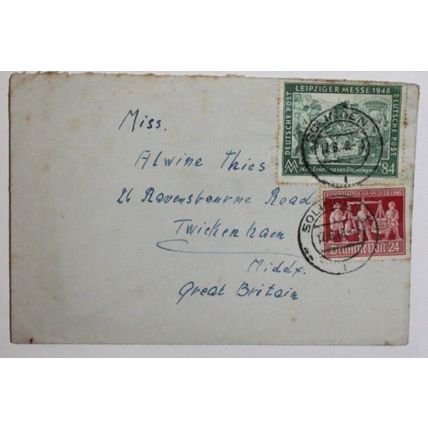 Miss.
Alwine Thies
26 Ravensbourne Road
Twickenham
Middx.
Great Britain
LEIPZIGER MESSE 1948
DEUTSCHE POST
DEUTSCHE POST
84
Deutsche Post 24